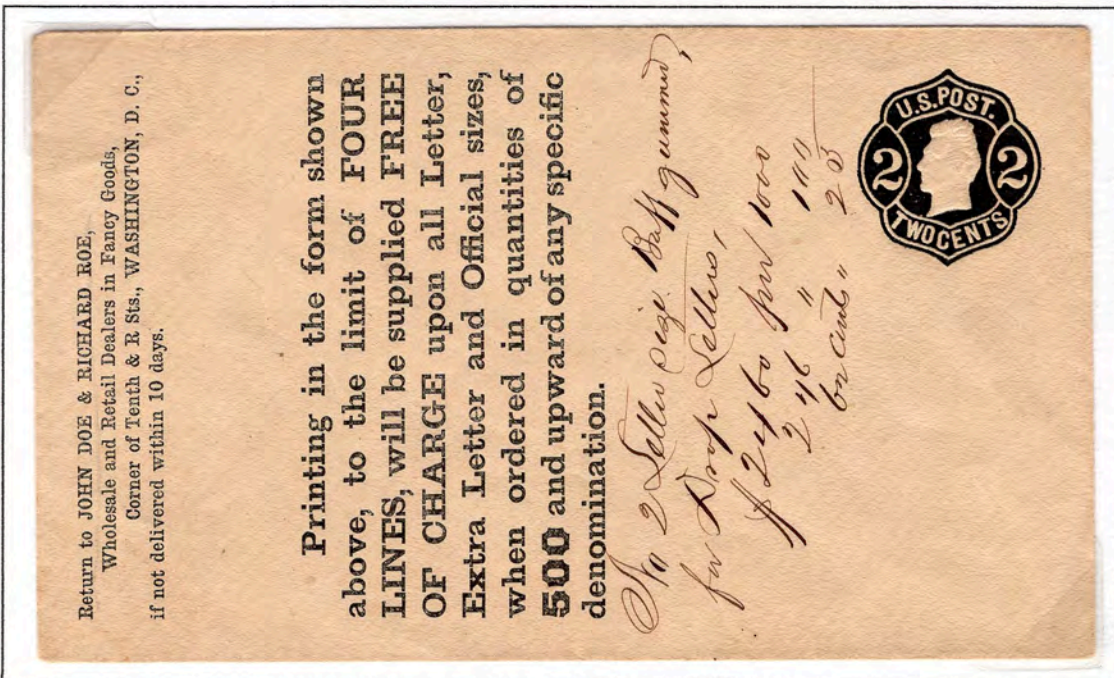 Return to JOHN DOE & RICHARD ROE,
Wholesale and Retail Dealers in Fancy Goods,
Corner of Tenth & R Sts., WASHINGTON, D. C.,
if not delivered within 10 days.
Printing in the form shown
above, to the limit of FOUR
LINES, will be supplied FREE
OF CHARGE upon all Letter,
Extra Letter and Official sizes,
when ordered in quantities of
500 and upward of any specific
denomination.
No 2 Letter size Buff gummed,
for Drop Letters,
$ 24 60 per 1000
2 46 " 100
or cents " 25
U.S. POST.
2 2
TWO CENTS